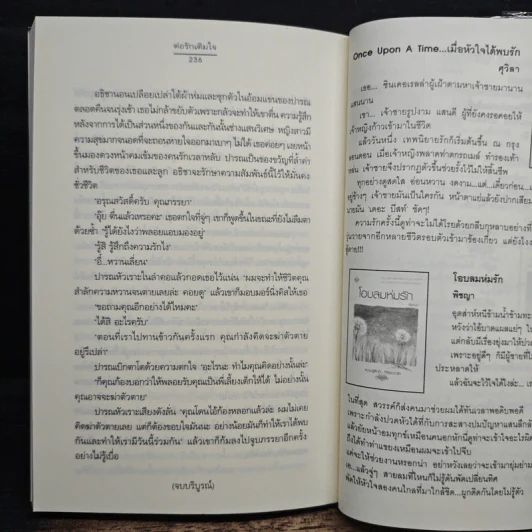 ต่อรักเติมใจ
236
อธิชานอนเปลือยเปล่าใต้ผ้าห่มและซุกตัวในอ้อมแขนของปารณ
ตลอดคืนจนรุ่งเช้า เธอไม่กล้าขยับตัวเพราะกลัวจะทำให้เขาตื่น ความรู้สึก
หลังจากการได้เป็นส่วนหนึ่งของกันและกันนั้นช่างแสนวิเศษ หญิงสาวมี
ความสุขมากจนอดที่จะถอนหายใจออกมาเบาๆ ไม่ได้ เธอค่อยๆ เงยหน้า
ขึ้นมองดวงหน้าคมเข้มของคนรักเวลาหลับ ปารณเป็นของขวัญที่ล้ำค่า
สำหรับชีวิตของเธอและลูก อธิชาจะรักษาความสัมพันธ์นี้ไว้ให้มั่นคง
ชั่วชีวิต
'อรุณสวัสดิ์ครับ คุณภรรยา'
'อุ๊ย ตื่นแล้วเหรอคะ' เธอตกใจที่จู่ๆ เขาก็พูดขึ้นในขณะที่ยังไม่ลืมตา
ด้วยซ้ำ 'รู้ได้ยังไงว่าพลอยแอบมองอยู่'
'รู้สิ รู้สึกถึงความรักไง'
'อี๋...หวานเลี่ยน'
ปารณหัวเราะในลำคอแล้วกอดเธอไว้แน่น 'ผมจะทำให้ชีวิตคุณ
สำลักความหวานจนตายเลยล่ะ คอยดู' แล้วเขาก็มอบมอร์นิ่งคิสให้เธอ
'ขอถามคุณอีกอย่างได้ไหมคะ'
'ได้สิ อะไรครับ'
'ตอนที่เราไปทานข้าวกันครั้งแรก คุณกำลังคิดจะฆ่าตัวตาย
อยู่รึเปล่า'
ปารณเบิกตาโตด้วยความตกใจ 'อะไรนะ ทำไมคุณคิดอย่างนั้นล่ะ'
'ก็คุณก้องบอกว่าให้พลอยรับคุณเป็นพี่เลี้ยงเด็กให้ได้ ไม่อย่างนั้น
คุณอาจจะฆ่าตัวตาย'
ปารณหัวเราะเสียงดังลั่น 'คุณโดนไอ้ก้องหลอกแล้วล่ะ ผมไม่เคย
คิดฆ่าตัวตายเลย แต่ก็ต้องขอบใจมันนะ อย่างน้อยมันก็ทำให้เราได้พบ
กันและทำให้เรามีวันนี้ร่วมกัน' แล้วเขาก็ก้มลงไปจูบภรรยาอีกครั้ง
อย่างไม่รู้เบื่อ
(จบบริบูรณ์)
Once Upon A Time...เมื่อหัวใจได้พบรัก
ศุวิลา
เธอ... ซินเดอเรลล่าผู้เฝ้าตามหาเจ้าชายมานาน
แสนนาน
เขา... เจ้าชายรูปงาม แสนดี ผู้ที่ยังคงรอคอยให้
เจ้าหญิงก้าวเข้ามาในชีวิต
แล้ววันหนึ่ง เทพนิยายรักก็เริ่มต้นขึ้น ณ กรุง
ลอนดอน เมื่อเจ้าหญิงพลาดท่าตกรถเมล์ ทำรองเท้า
เจ้าชายจึงปรากฏตัวขึ้นช่วยรั้งไว้ไม่ให้สิ้นชีพ
ทุกอย่างดูสดใส อ่อนหวาน งดงาม...แต่...เดี๋ยวก่อน...
ความรักครั้งนี้ดูท่าจะไม่ได้โรยด้วยกลีบกุหลาบอย่างที่
โอบลมห่มรัก
พิชญา
โอบลมห่มรัก